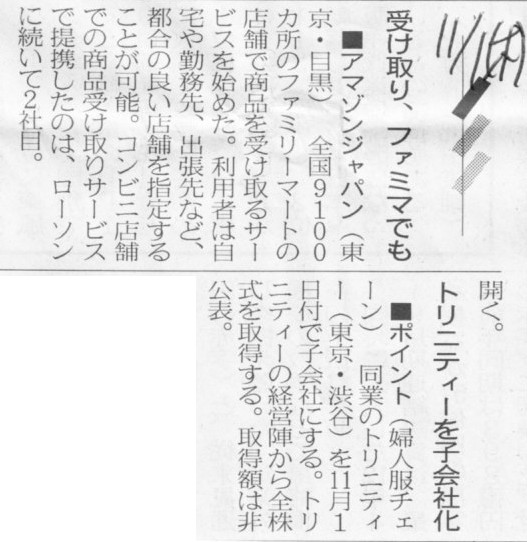 受け取り、ファミマでも
■アマゾンジャパン（東
京・目黒） 全国9100
カ所のファミリーマートの
店舗で商品を受け取るサー
ビスを始めた。利用者は自
宅や勤務先、出張先など、
都合の良い店舗を指定する
ことが可能。コンビニ店舗
での商品受け取りサービス
で提携したのは、ローソン
に続いて2社目。
開く。
トリニティーを子会社化
■ポイント（婦人服チェ
ーン） 同業のトリニティ
ー（東京・渋谷）を11月1
日付で子会社にする。トリ
ニティーの経営陣から全株
式を取得する。取得額は非
公表。